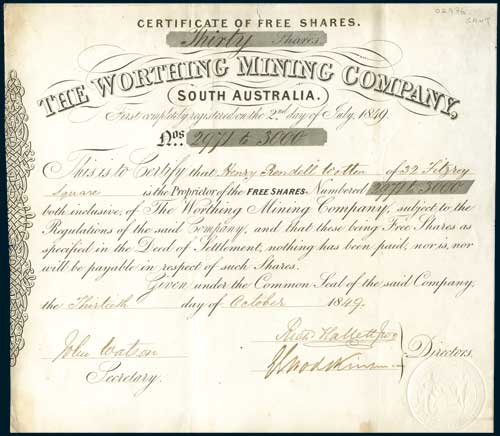 02976
CERTIFICATE OF FREE SHARES.
Thirty Shares.
THE WORTHING MINING COMPANY,
SOUTH AUSTRALIA.
First completely registered on the 2nd day of July, 1849.
Nos. 2971 to 3000
This is to Certify that Henry Rendell Wotton of 32 Fitzroy
Square is the Proprietor of the FREE SHARES Numbered 2971 to 3000
both inclusive, of The Worthing Mining Company, subject to the
Regulations of the said Company, and that these being Free Shares as
specified in the Deed of Settlement, nothing has been paid, nor is, nor
will be payable in respect of such Shares.
Given under the Common Seal of the said Company,
the Thirtieth day of October 1849.
John Watson
Secretary.
Hallett
Directors.